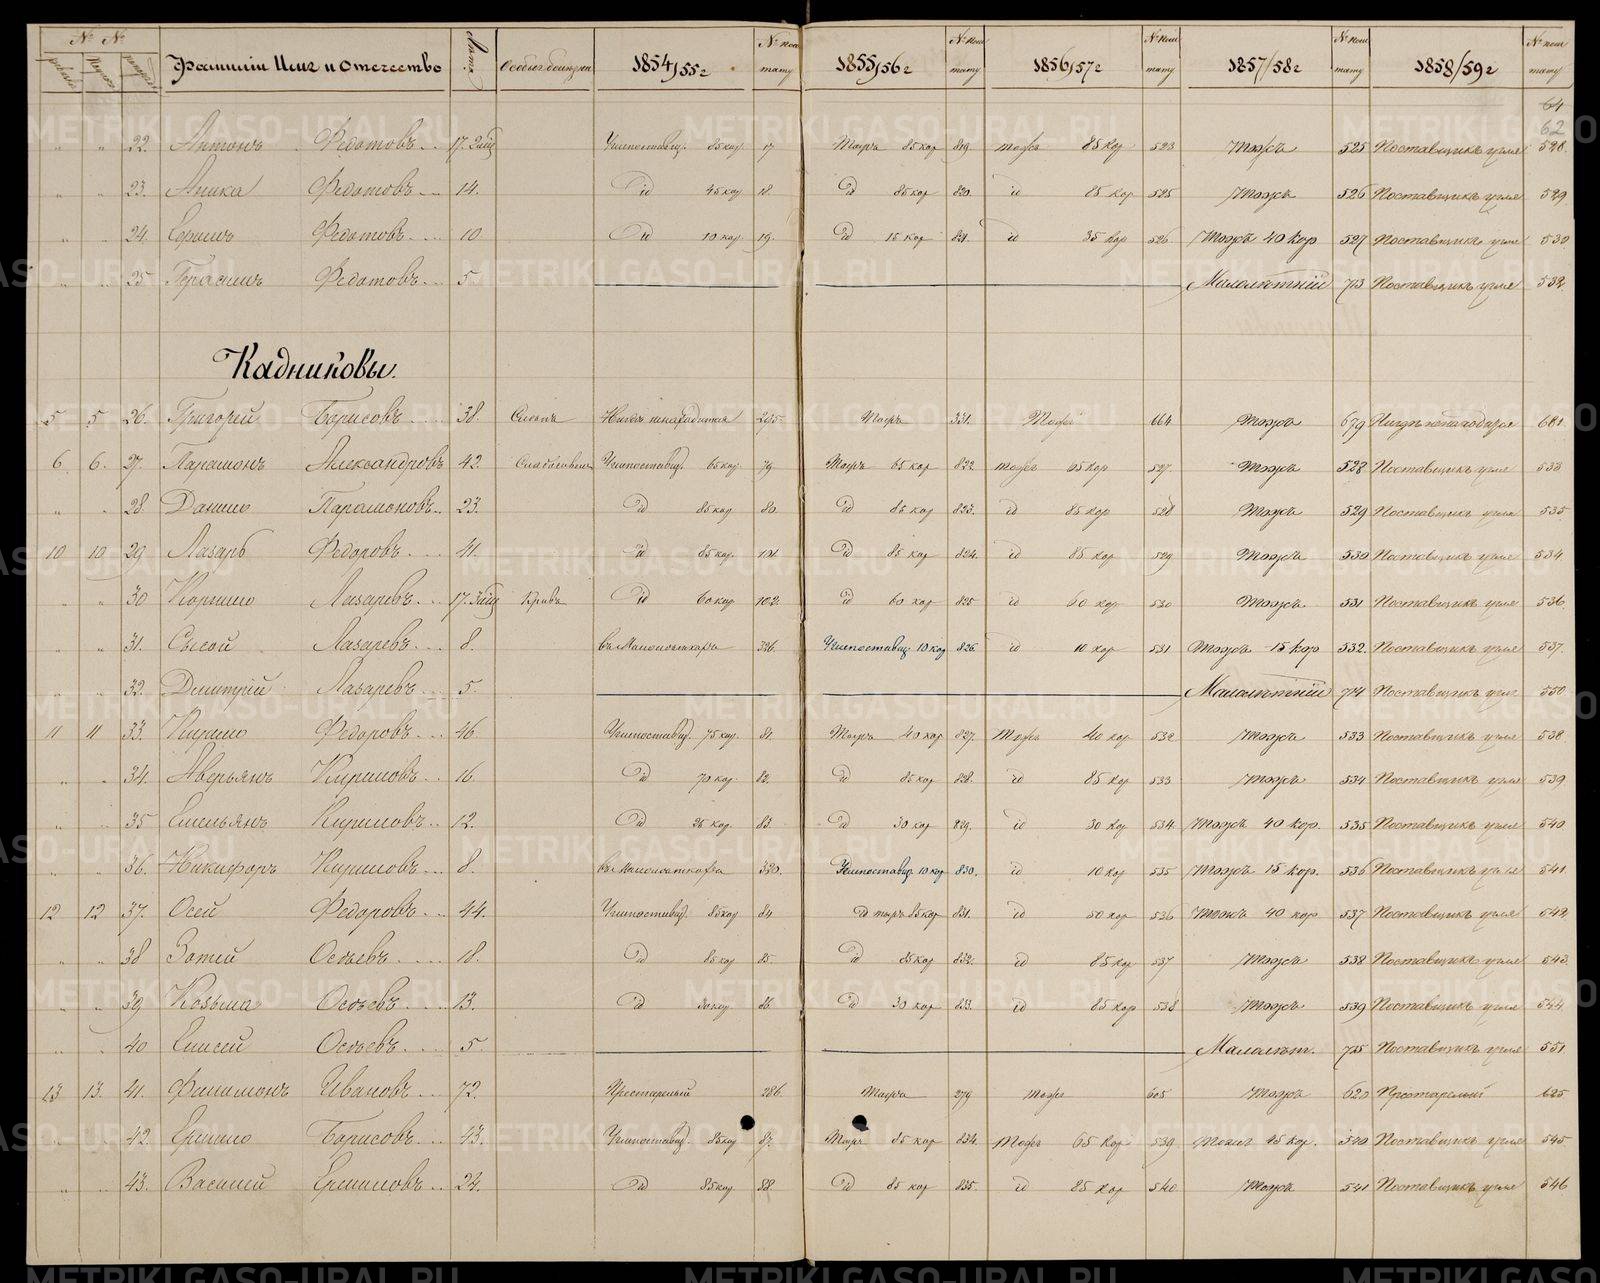 № № Фамиліи Имя и Отечество Лѣта 1854/55 г № 1855/56 г № 1856/57 г № 1857/58 г № 1858/59 г №
64
62
22. Антонъ Федотовъ 17. 85 кор 17 Тожъ 85 кор 819 тожъ 85 кор 523 Тожъ 525 Поставщикъ угля 528
23. Аника Федотовъ 14. id 45 кор 18. id 85 кор 820. id 85 кор 525 Тожъ 526 Поставщикъ угля 529
24. Федотовъ 10 id 10 кор 19. id 15 кор 821. id 35 кор 526 Тожъ 40 кор 527 Поставщикъ угля 530
25 Герасимъ Федотовъ 5. Малолѣтній 713 Поставщикъ угля 532
Кадниковы.
5 5 26. Григорій Борисовъ 38. Слепъ 295 Тожъ 331. Тожъ 664 Тожъ 679 681
6. 6. 27. Парамонъ Александровъ 42. Углепоставщ. 65 кор 79 Тожъ 65 кор 822. тожъ 65 кор 527 Тожъ 528 Поставщикъ угля 533
28. Данило Парамоновъ 23. id 85 кор 80 id 85 кор 823. id 85 кор 528 Тожъ 529 Поставщикъ угля 535
10 10 29 Лазарь Федоровъ 41. id 85 кор. 101. id 85 кор 824. id 85 кор 529 Тожъ 530 Поставщикъ угля 534
30 Корнило Лазаревъ 17. Кривъ id 60 кор 102. id 60 кор 825 id 60 кор 530 Тожъ 531 Поставщикъ угля 536
31. Сысой Лазаревъ 8. Углепоставщ. 10 кор 826 id 10 кор 531 Тожъ 15 кор 532. Поставщикъ угля 537
32. Дмитрій Лазаревъ 5. Малолѣтній 714 Поставщикъ угля 550
11 11 33. Кирило Федоровъ 46. Углепоставщ. 75 кор. 81. Тожъ 40 кор 827. Тожъ 40 кор 532 Тожъ 533 Поставщикъ угля 538
34. Аверьянъ Кириловъ 16 id 70 кор 82. id 85 кор 828. id 85 кор 533 Тожъ 534 Поставщикъ угля 539
35 Емельянъ Кириловъ 12. id 25 кор. 83. id 30 кор 829. id 30 кор 534 Тожъ 40 кор. 535 Поставщикъ угля 540
36. Никифоръ Кириловъ 8. 320. Углепоставщ. 10 кор 830. id 10 кор 535 Тожъ 15 кор. 536 Поставщикъ угля 541
12 12 37. Осей Федоровъ 44. Углепоставщ. 85 кор 84 85 кор 831. id 50 кор 536 Тожъ 40 кор 537 Поставщикъ угля 542
38 Зотей Осѣевъ 18. id 85 кор 85. id 85 кор 832. id 85 кор 537 Тожъ 538 Поставщикъ угля 543
39 Козьма Осѣевъ 13. id 30 кор 86. id 30 кор 833. id 85 кор 538 Тожъ 539 Поставщикъ угля 544
40 Елисей Осѣевъ 5. Малолѣт. 725 Поставщикъ угля 551
13 13. 41. Филимонъ Ивановъ 72. Престарелый 286. Тожъ 279 Тожъ 605 Тожъ 620 Престарелый 625
42. Ермило Борисовъ 43. Углепоставщ. 85 кор 87. Тожъ 85 кор 834. Тожъ 65 кор 539 540 Поставщикъ угля 545
43. Василей Ермиловъ 24. id 85 кор 88. id 85 кор 835. id 85 кор 540 Тожъ 541 Поставщикъ угля 546
METRIKI.GASO-URAL.RU